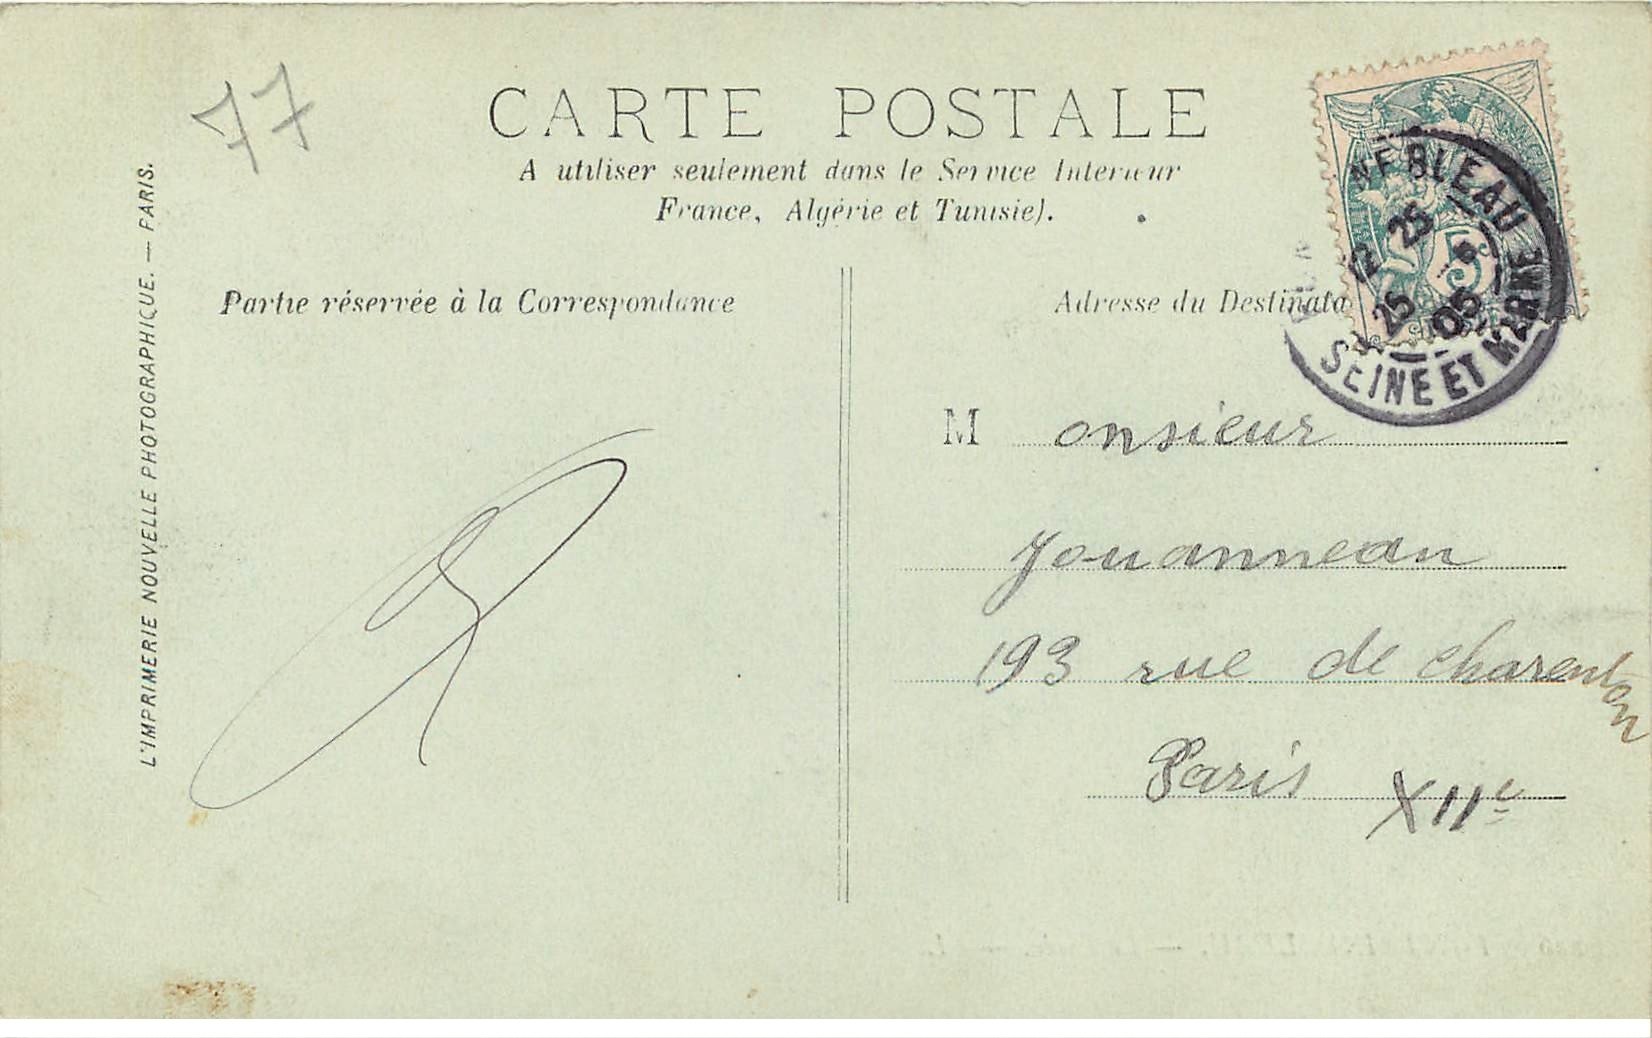 77
CARTE POSTALE
A utiliser seulement dans le Service Interieur
France, Algérie et Tunisie).
Partie réservée à la Correspondance
Adresse du Destinata
NEBLEAU
12 25
25 5
05
SEINE ET MARNE
5
L'IMPRIMERIE NOUVELLE PHOTOGRAPHIQUE. — PARIS.
Monsieur
Jouanneau
193 rue de charenton
Paris XIIe